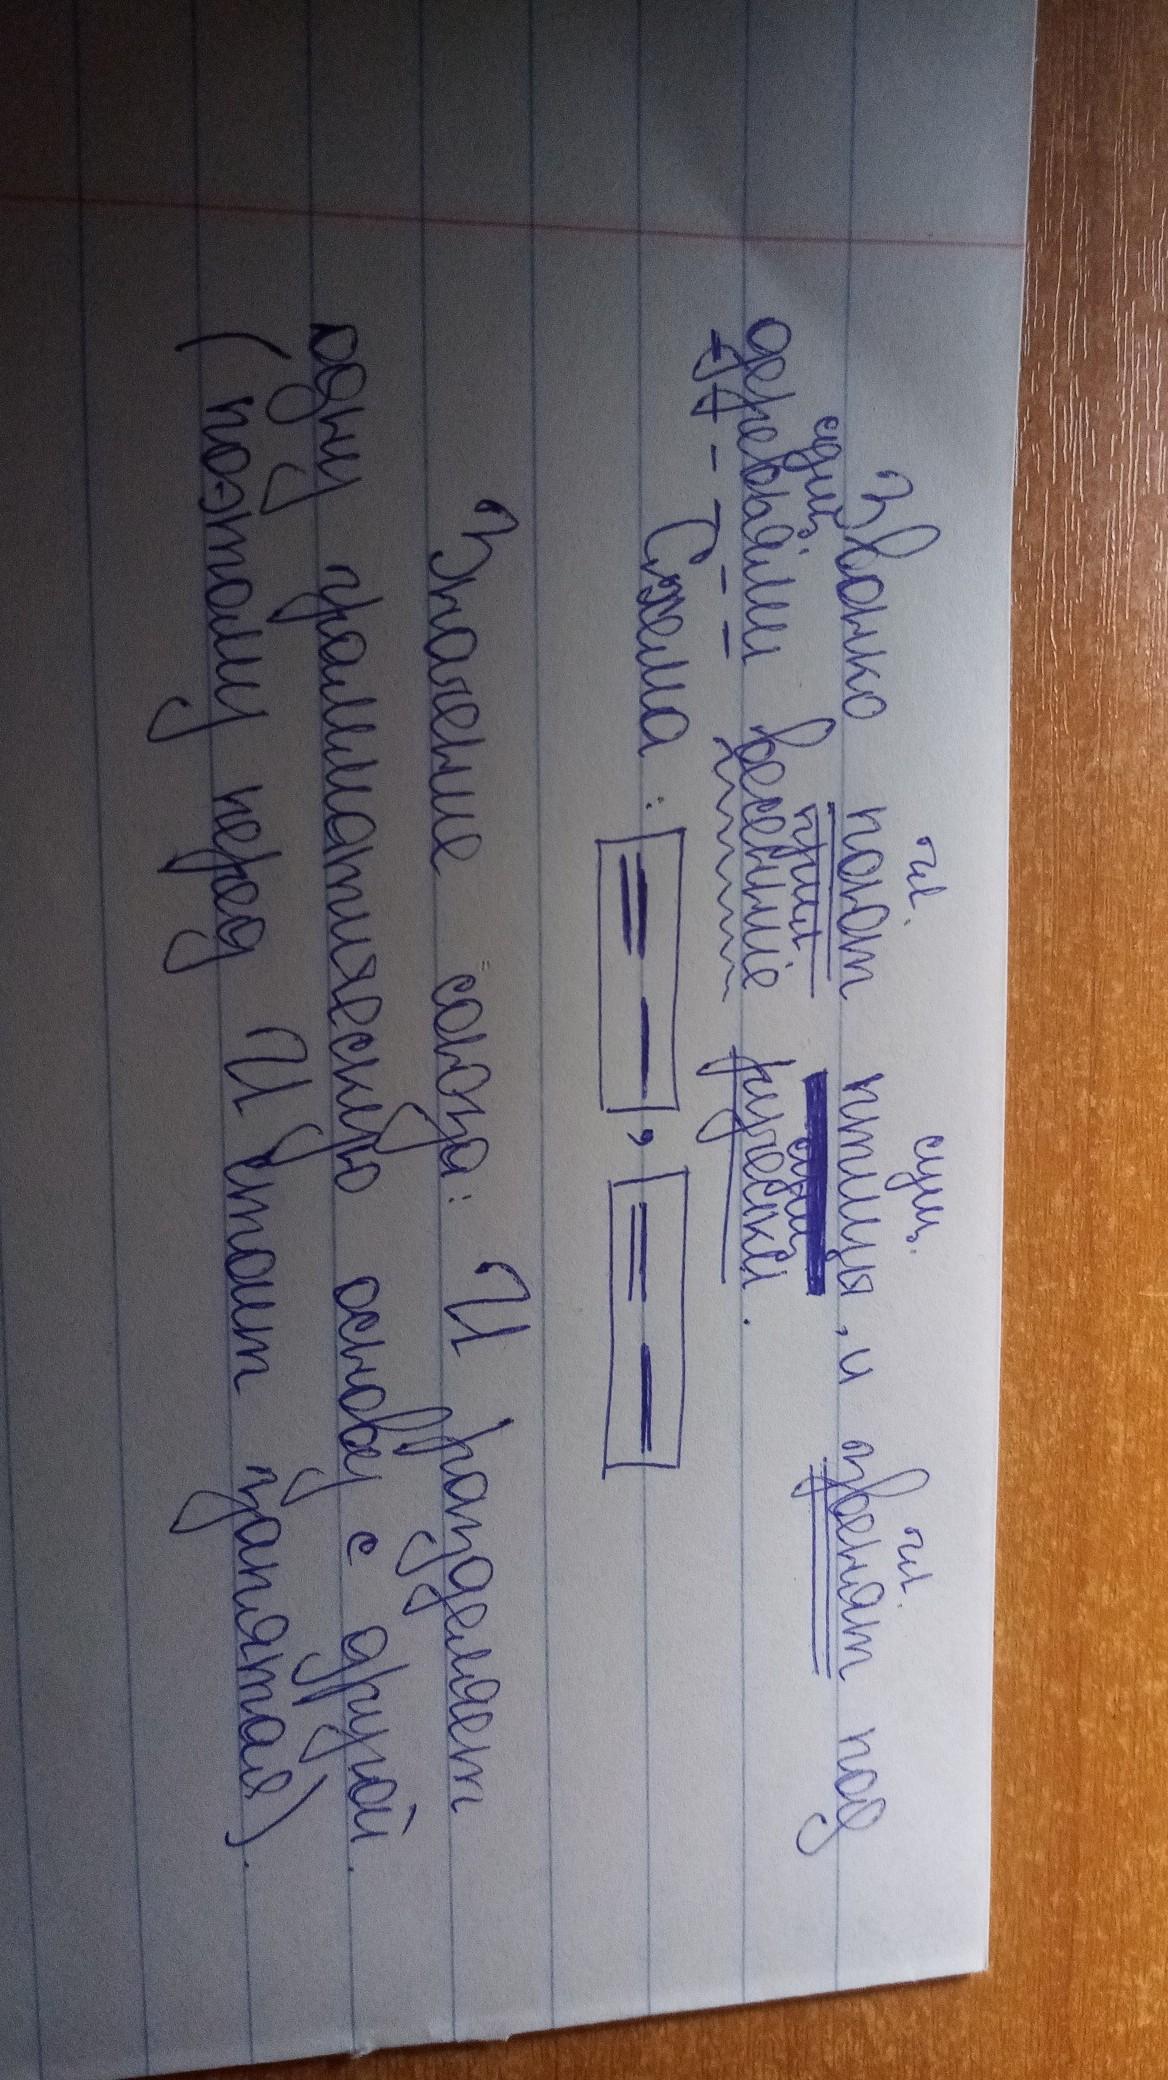 гл. сущ. гл.
Звонко поют птицы, и звенят под
сущ. прил. сущ.
деревьями весенние ручейки.
Схема: ,
Значение союза: И разделяет
одну грамматическую основу с другой.
(поэтому перед И стоит запятая).